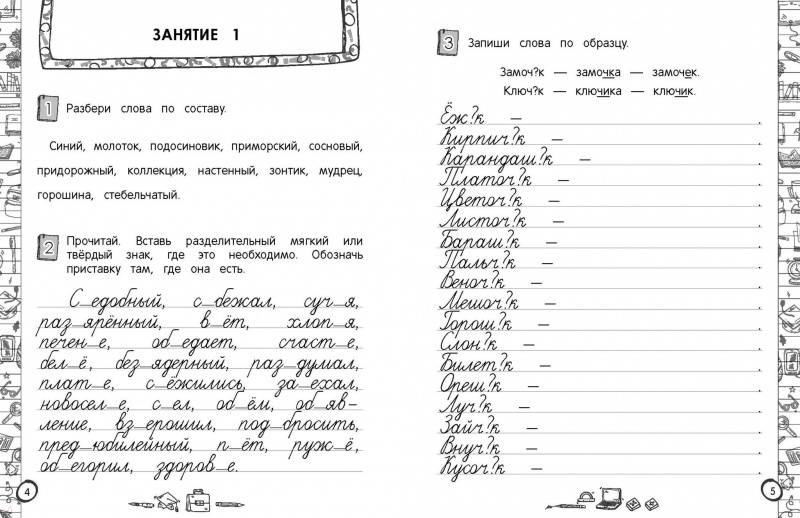 ЗАНЯТИЕ 1
1 Разбери слова по составу.
Синий, молоток, подосиновик, приморский, сосновый,
придорожный, коллекция, настенный, зонтик, мудрец,
горошина, стебельчатый.
2 Прочитай. Вставь разделительный мягкий или
твёрдый знак, где это необходимо. Обозначь
приставку там, где она есть.
С_едобный, с_бежал, суч_я,
раз_ярённый, в_ёт, хлоп_я,
печен_е, об_едает, счаст_е,
бел_ё, без_ядерный, раз_думал,
плат_е, с_ёжились, за_ехал,
новосел_е, с_ел, об_ём, об_яв-
ление, вз_ерошил, под_бросить,
пред_юбилейный, п_ёт, руж_ё,
об_егорил, здоров_е.
4
3 Запиши слова по образцу.
Замоч?к — замочка — замочек.
Ключ?к — ключика — ключик.
Ёж?к — .
Кирпич?к — .
Карандаш?к — .
Платоч?к — .
Цветоч?к — .
Листоч?к — .
Бараш?к — .
Пальч?к — .
Веноч?к — .
Мешоч?к — .
Горош?к — .
Слон?к — .
Билет?к — .
Ореш?к — .
Луч?к — .
Зайч?к — .
Внуч?к — .
Кусоч?к — .
5